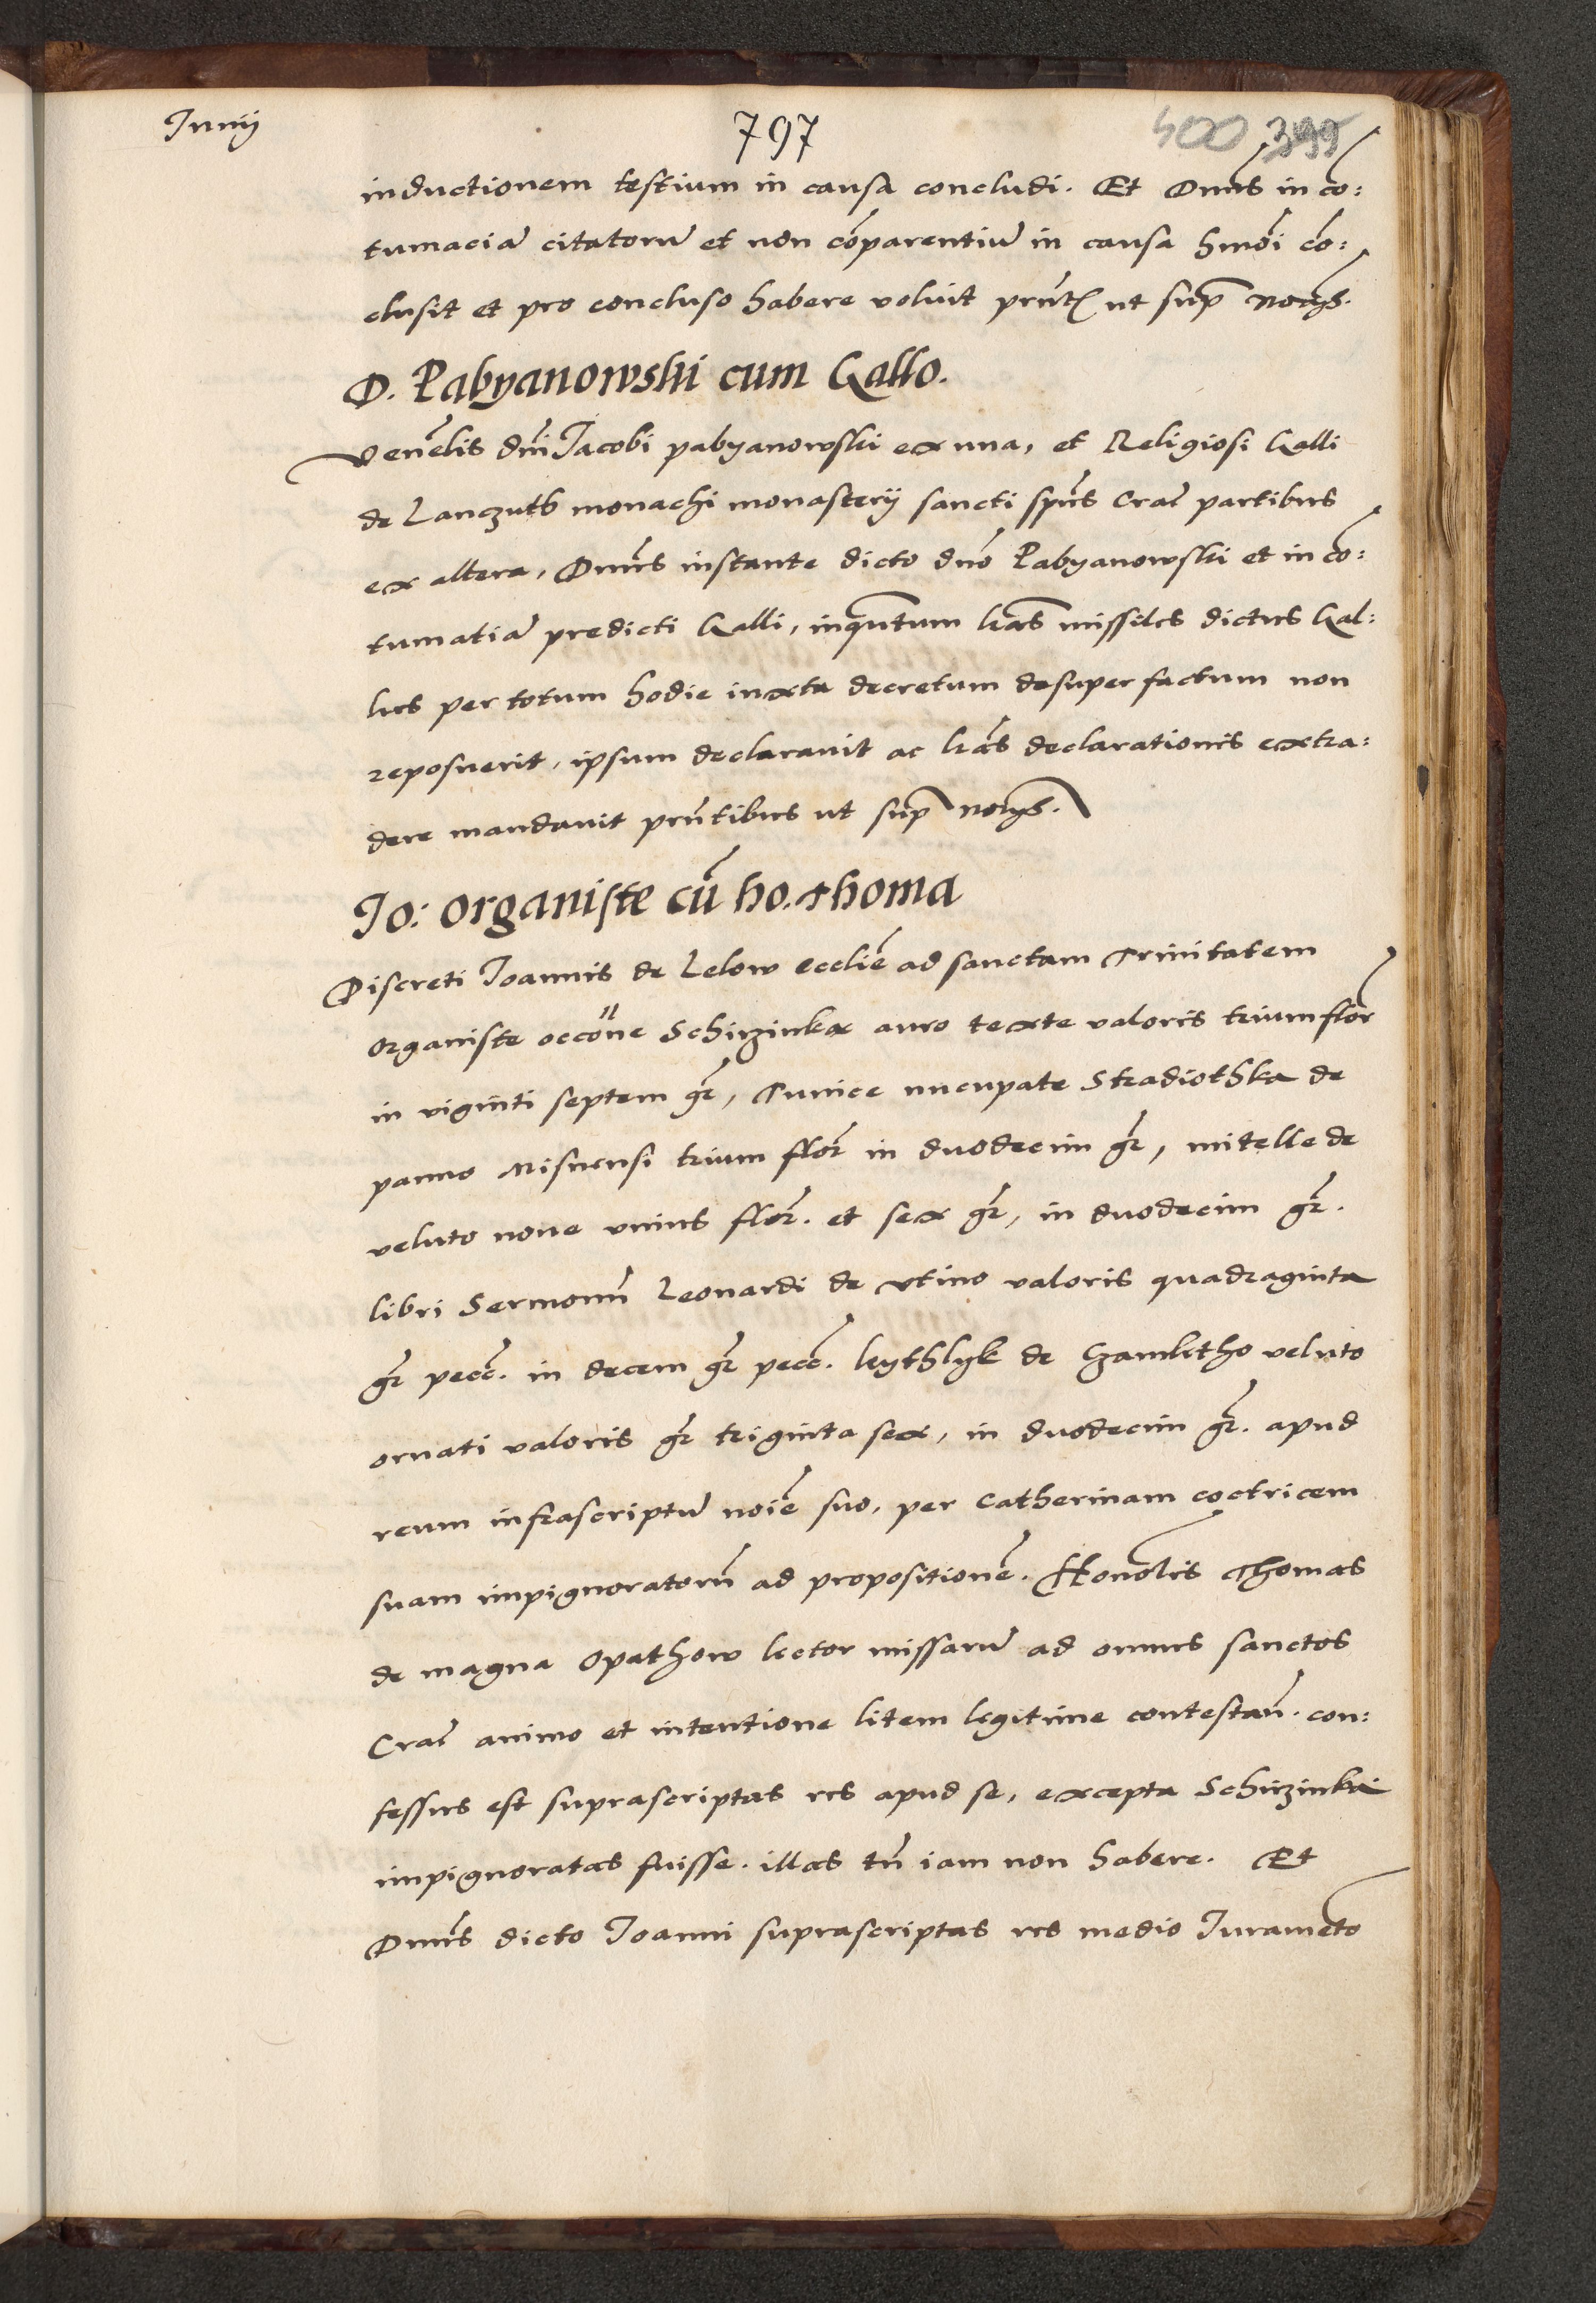 Junij
797
400 399
inductionem testium in causa concludi. Et Dnus in co:
tumaciã citatorũ et non cõparentiũ in causa hmõi cõ:
clusit et pro concluso habere voluit pñt ut sup noys.
D. Pabyanowski cum Gallo.
Venelis dñi Jacobi pabyanowski ex una, et Religiosi Galli
de Lanczuth monachi monasterij sancti spũs Crac partibus
ex altera, Dnus instante dicto dno Pabyanowski et in cõ:
tumatiã predicti Galli, inquantum lrãs missiles dictus Gal:
lus per totum hodie iuxta decretum desuper factum non
reposuerit, ipsum declarauit ac lrãs declarationis extra:
dere mandauit pñtibus ut sup noys.
Jo: organiste cũ ho. Thoma
Discreti Joannis de Lelow ecclie ad sanctam Trinitatem
organiste occõne Schirzinkæ auro texte valoris trium flor
in viginti septem gr, Tunice nucupate Stradiothka de
panno Misnensi trium flor in duodecim gr, mitelle de
veluto noue vnius flor. et sex gr, in duodecim gr.
libri Sermonũ Leonardi de Vtino valoris quadraginta
gr pecc. in decem gr pecc. kythlyk de Czamletho veluto
ornati valoris gr triginta sex, in duodecim gr. apud
reum infrascriptũ noie suo, per Catherinam coctricem
suam impignoratorũ ad propositionẽ. Honolis Thomas
de magna Opathow lector missarũ ad omnes sanctos
Crac animo et intentione litem legitime contestañ. con:
fessus est suprascriptas res apud se, excepta Schirzinka
impignoratas fuisse. illas tñ iam non habere. Et
Dnus dicto Joanni suprascriptas res medio Juramẽto